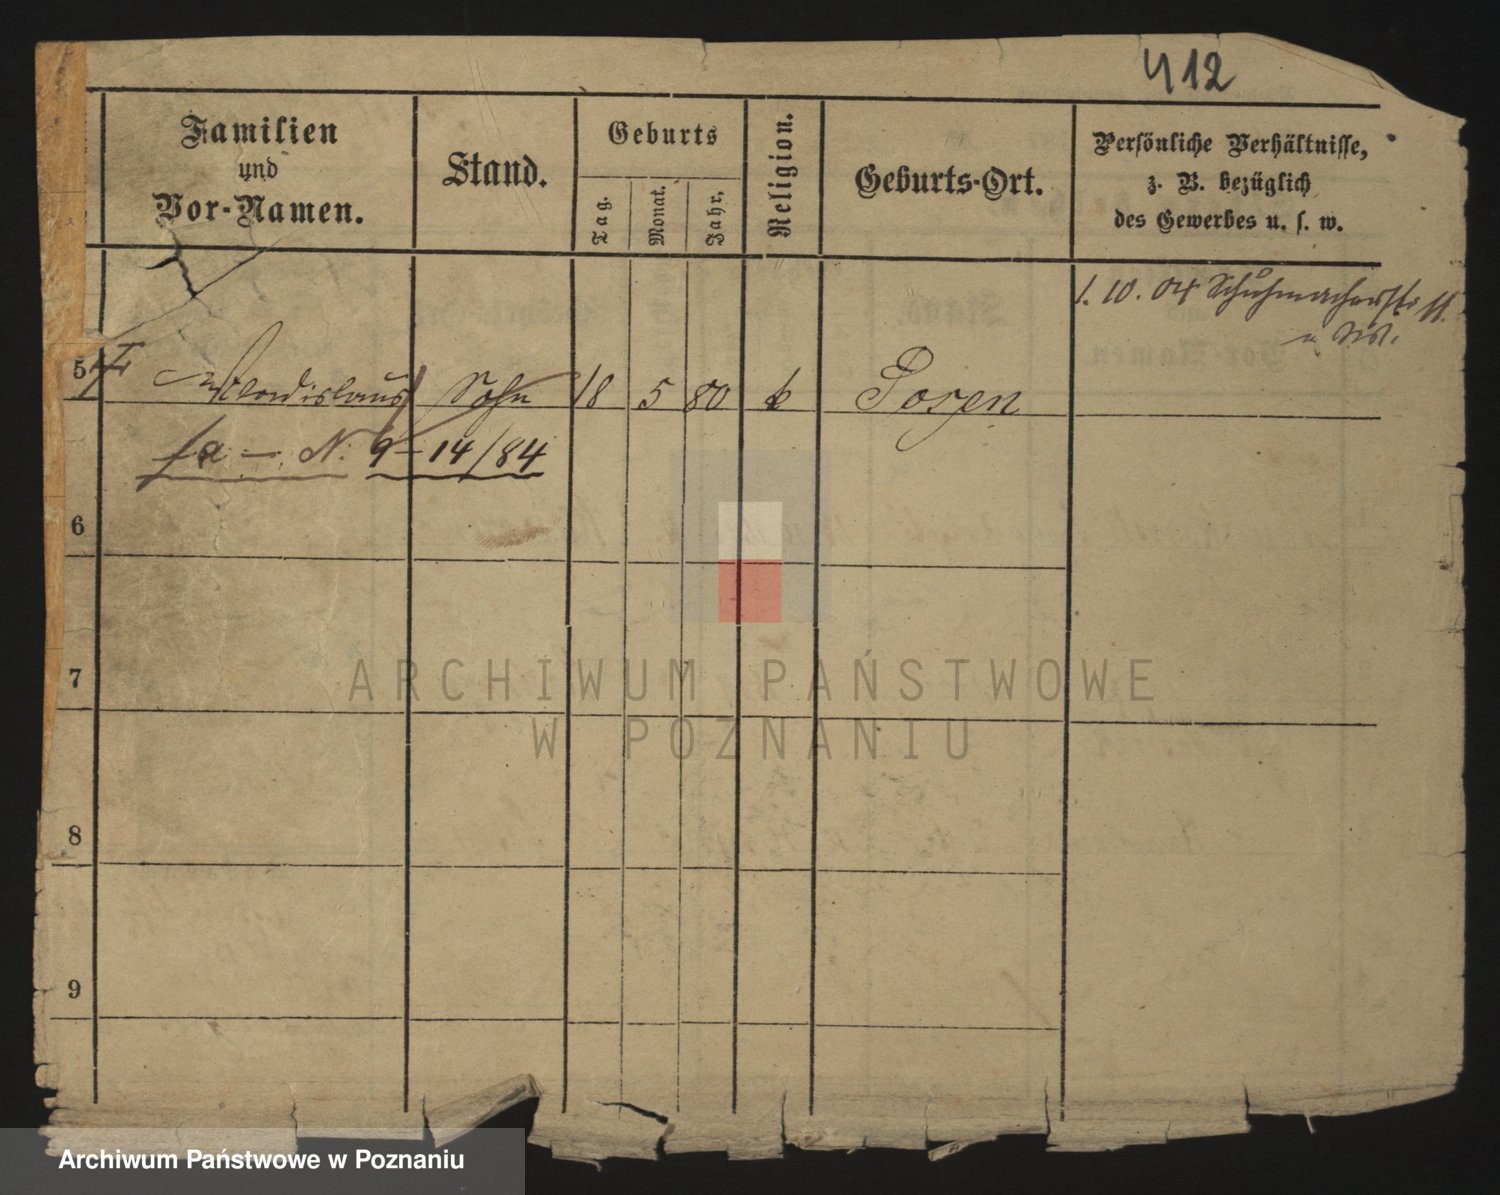 412
Familien
und
Vor-Namen.
Stand.
Geburts
Tag.
Monat.
Jahr.
Religion.
Geburts-Ort.
Persönliche Verhältnisse,
z. B. bezüglich
des Gewerbes u. s. w.
1. 10. 04 Schuhmacherstr 11.
5 Wladislaus Sohn 18 5 80 k Posen
fa — N. 9-14/84
6
7
8
9
ARCHIWUM PAŃSTWOWE
W POZNANIU
Archiwum Państwowe w Poznaniu